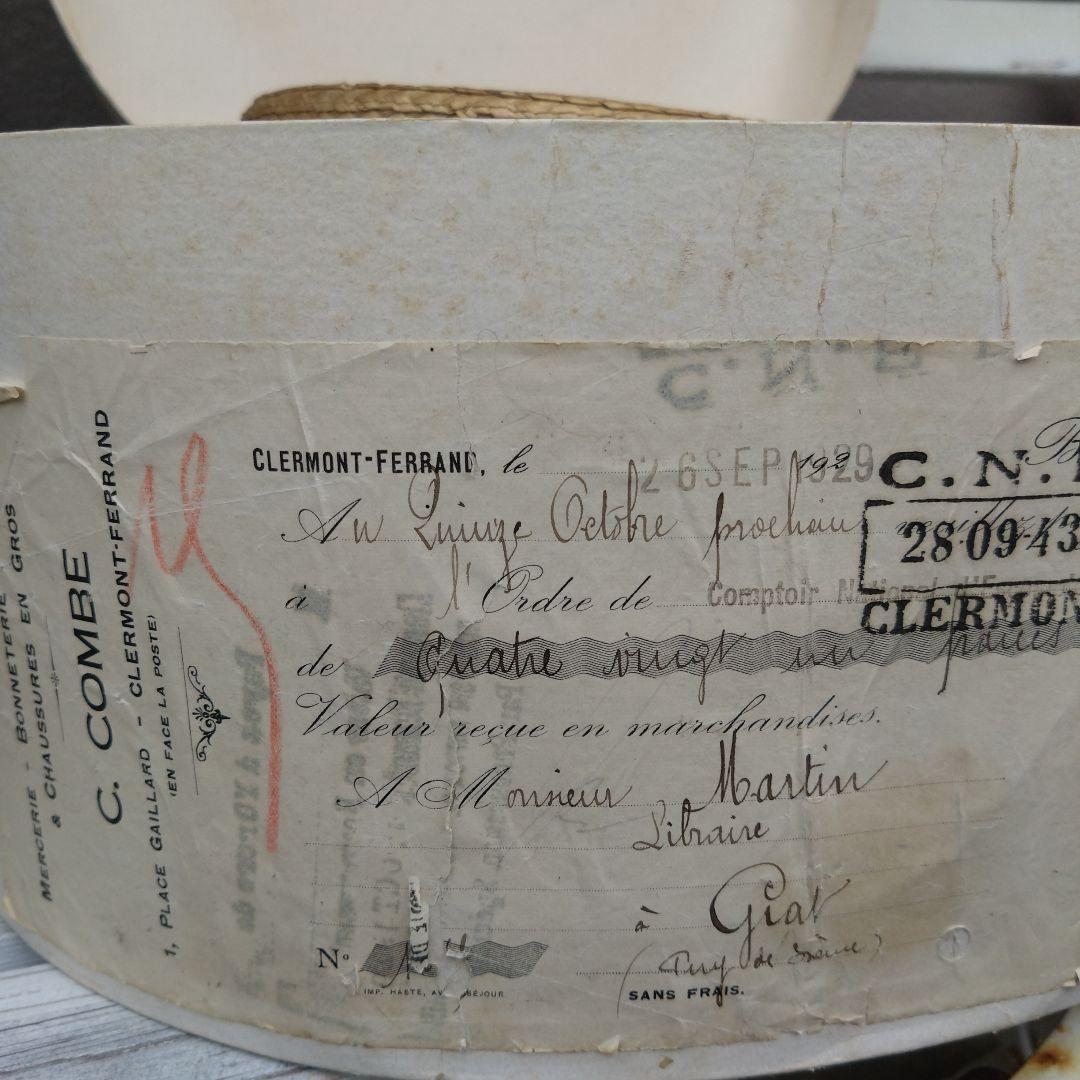 MERCERIE - BONNETERIE
& CHAUSSURES EN GROS
C. COMBE
1, PLACE GAILLARD - CLERMONT-FERRAND
(EN FACE LA POSTE)
CLERMONT-FERRAND, le 26 SEP 1929
Au Quinze Octobre prochain
à l'Ordre de Comptoir National
de Quatre vingt un francs
Valeur reçue en marchandises.
A Monsieur Martin
Libraire
à Giat
(Puy de Dôme)
N°
SANS FRAIS.
C.N.
28-09-43
CLERMON